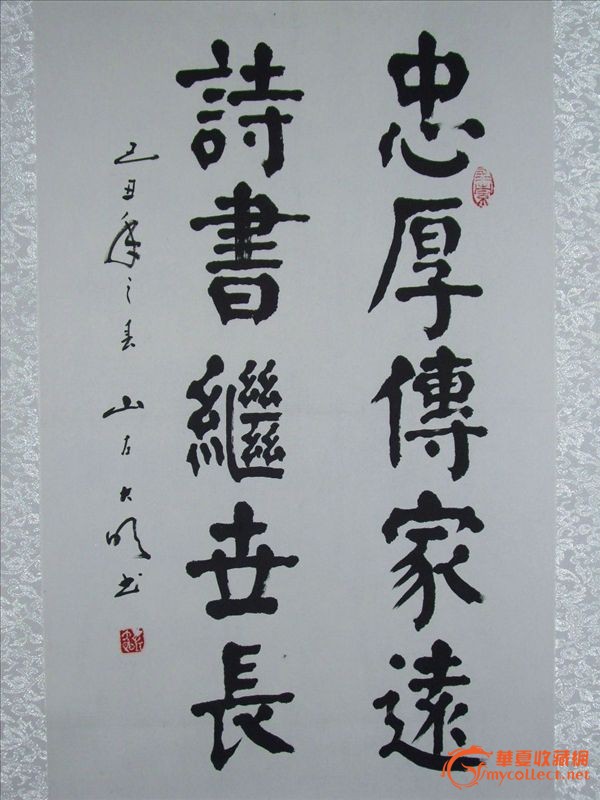 忠厚傳家遠
詩書繼世長
己丑年之春 山左大明书
華夏收藏網
mycollect.net